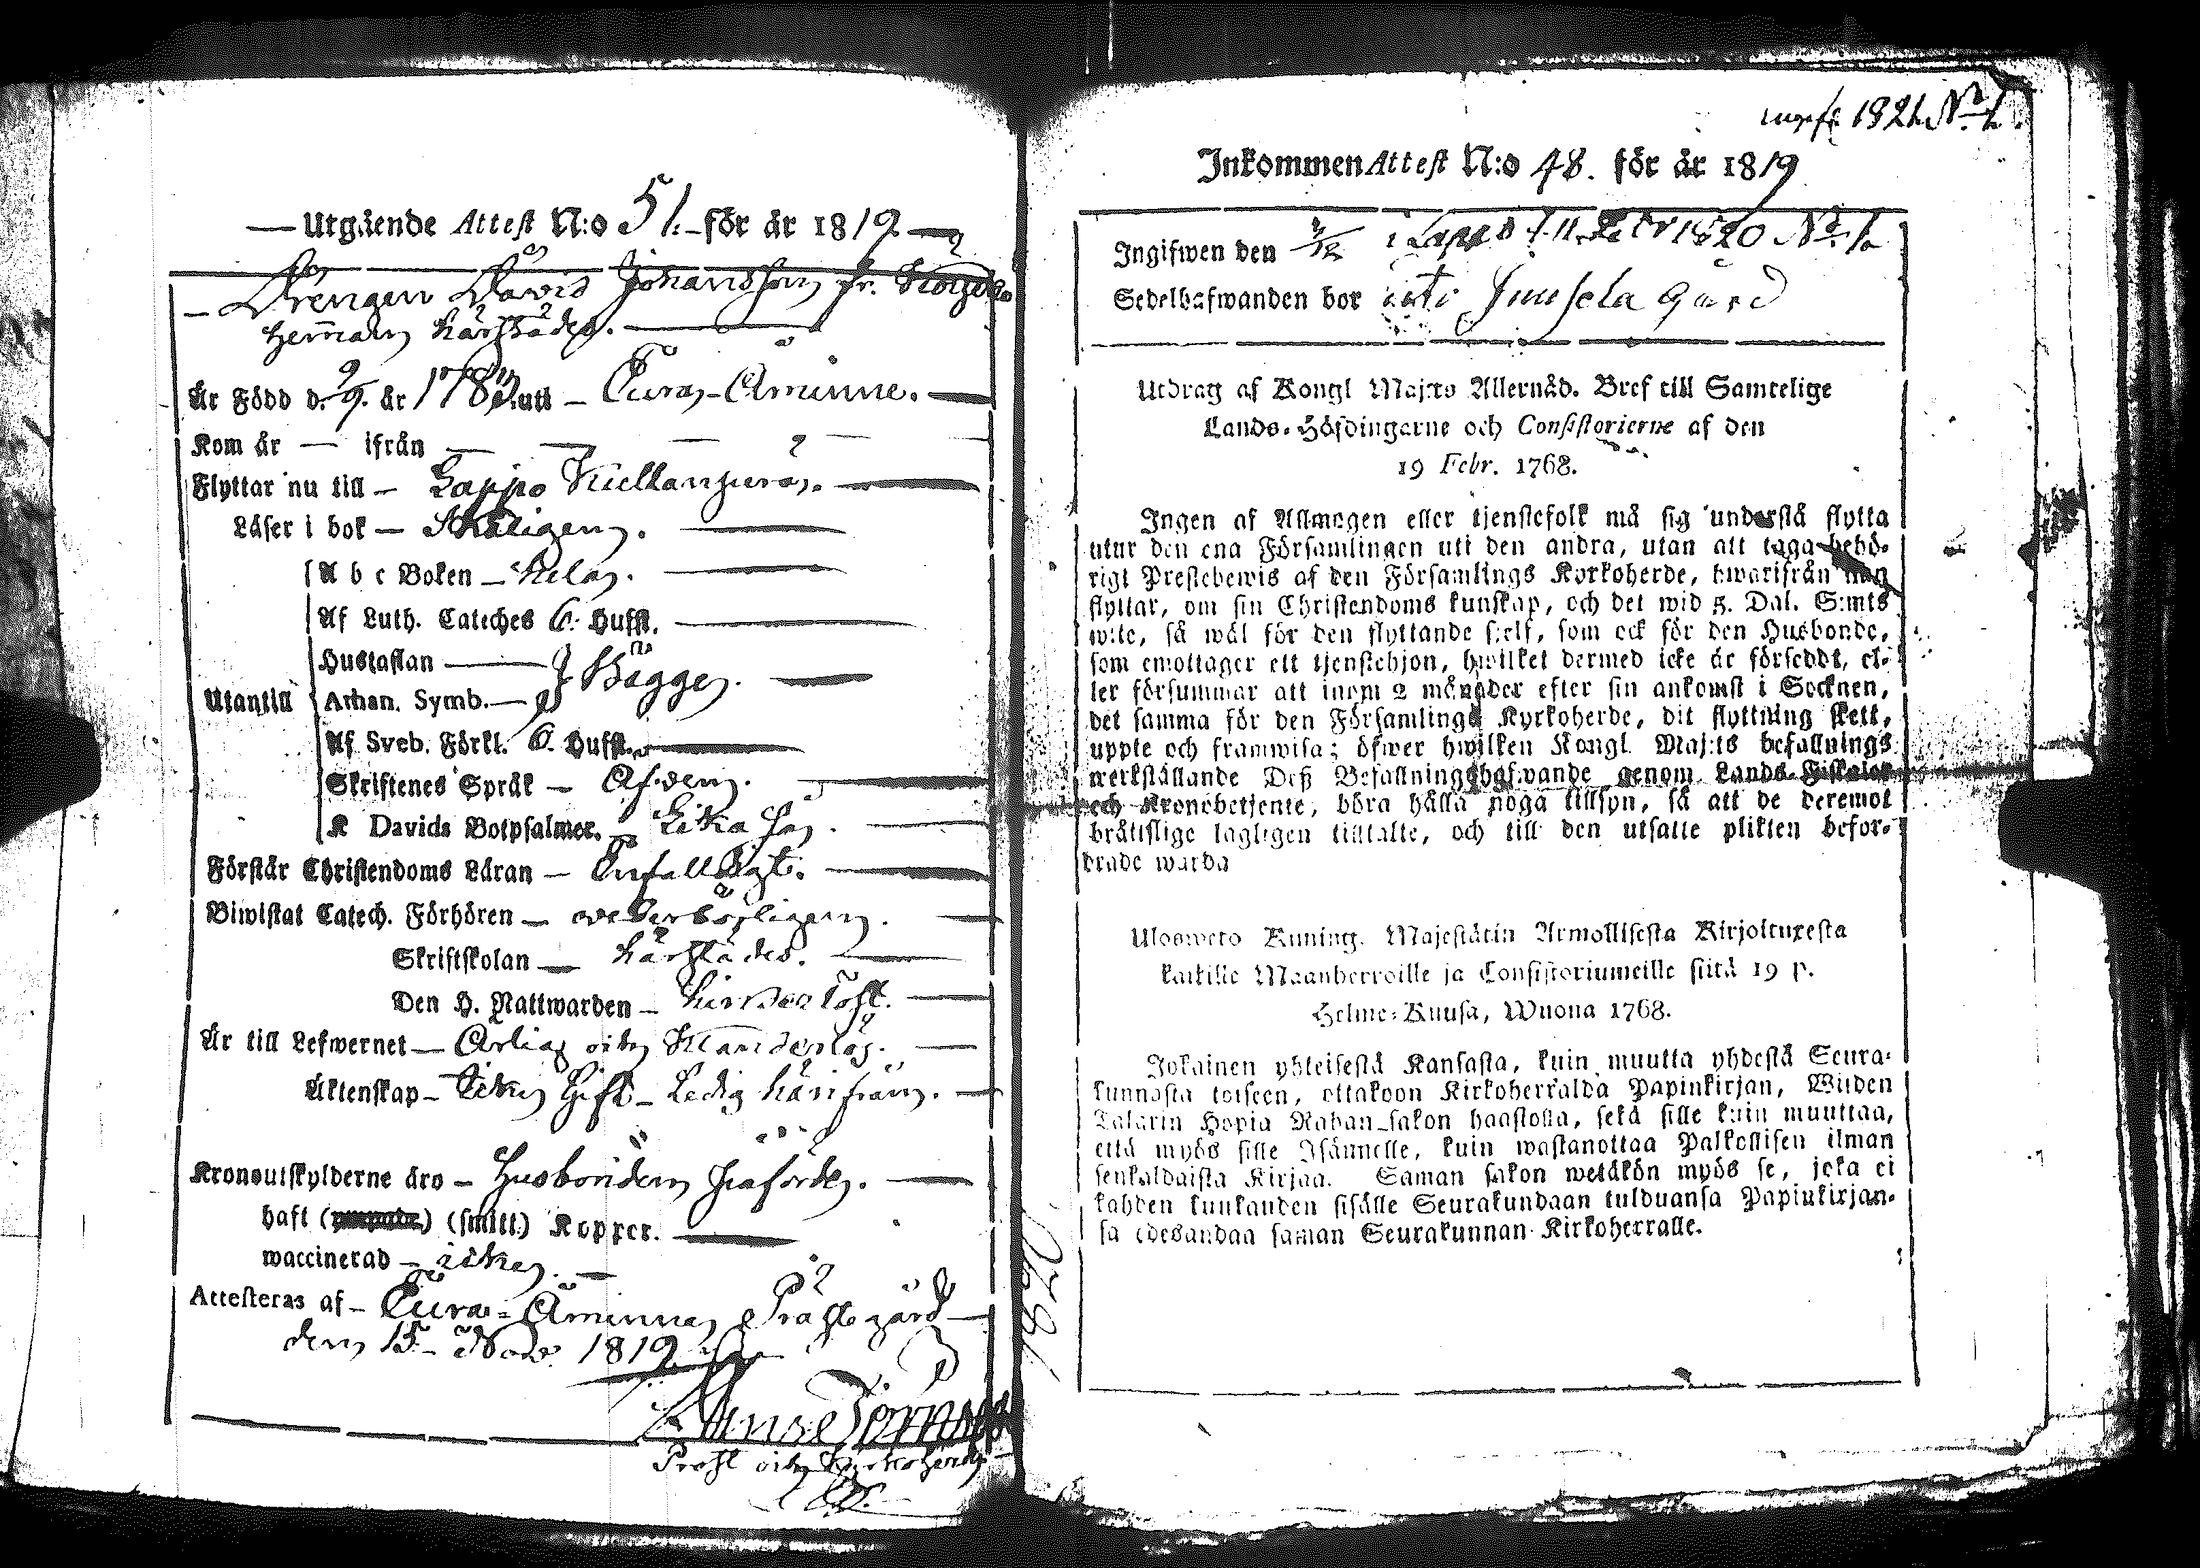 Utgående Attest N:o 51. för år 1819
Drengen David Johansson fr.
härstädes.
Är Född d. 9/9. år 178 uti Eura-Åminne.
Kom år — ifrån —
Flyttar nu till — Lappo
Läser i bok — Skäligen.
A b c Boken — hela.
Af Luth. Cateches 6. Hufst.
Hustaflan
Utantill Athan. Symb. Bägge.
Af Sveb. Förkl. 6. Hufst.
Skriftenes Språk — Äfven.
K Davids Botpsalmer. Lika så.
Förstår Christendoms Läran — Enfalldigt.
Biwistat Catech. Förhören — wederbörligen.
Skriftskolan — härstädes.
Den H. Nattwarden —
Är till Lefwernet — Ärlig och
Äktenskap — icke Gift — Ledig härifrån.
Kronoutskylderne äro — Husbonden påförde.
haft (smitt.) Koppor.
waccinerad — icke.
Attesteras af — Eura-Åminne Prästegård
den 15 Nov. 1819
Prost och Kyrkoherde
1821 N:o 1.
Inkommen Attest N:o 48. för år 1819
Ingifwen den i Lappo 1820 N:o 1.
Sedelhafwanden bor uti gård
Utdrag af Kongl Maj:ts Allernåd. Bref till Samtelige
Lands-Höfdingarne och Consistorierne af den
19 Febr. 1768.
Ingen af Allmogen eller tjenstefolk må sig understå flytta
utur den ena Församlingen uti den andra, utan att taga behö-
rigt Prestebewis af den Församlings Kyrkoherde, hwarifrån man
flyttar, om sin Christendoms kunskap, och det wid 5. Dal. S:mts
wite, så wäl för den flyttande sielf, som ock för den Husbonde,
som emottager ett tjenstehjon, hwilket dermed icke är försedt, el-
ler försummar att inom 2 månader efter sin ankomst i Socknen,
det samma för den Församlings Kyrkoherde, dit flyttning skett,
uppte och framwisa; öfwer hwilken Kongl. Maj:ts befallnings
werkställande Deß Befallningshafwande genom Lands-Fiskaler
och Kronobetjente, böra hålla noga tillsyn, så att de deremot
bråttslige lagligen tilltalte, och till den utsatte plikten befor-
drade warda
Uloswето Kuning. Majestätin Armollisesta Kirjoituxesta
kaikille Maanherroille ja Consistoriumeille siitä 19 p.
Helme-Kuusa, Wuona 1768.
Jokainen yhteisestä Kansasta, kuin muutta yhdestä Seura-
kunnasta toiseen, ottakoon Kirkoherralda Papinkirjan, Wiiden
Talarin Hopia Rahan sakon haastolla, sekä sille kuin muuttaa,
että myös sille Isännelle, kuin wastanottaa Palkollisen ilman
senkaldaista Kirjaa. Saman sakon wetäkön myös se, joka ei
kahden kuukauden sisälle Seurakundaan tulduansa Papinkirjan-
sa edesandaa saman Seurakunnan Kirkoherralle.